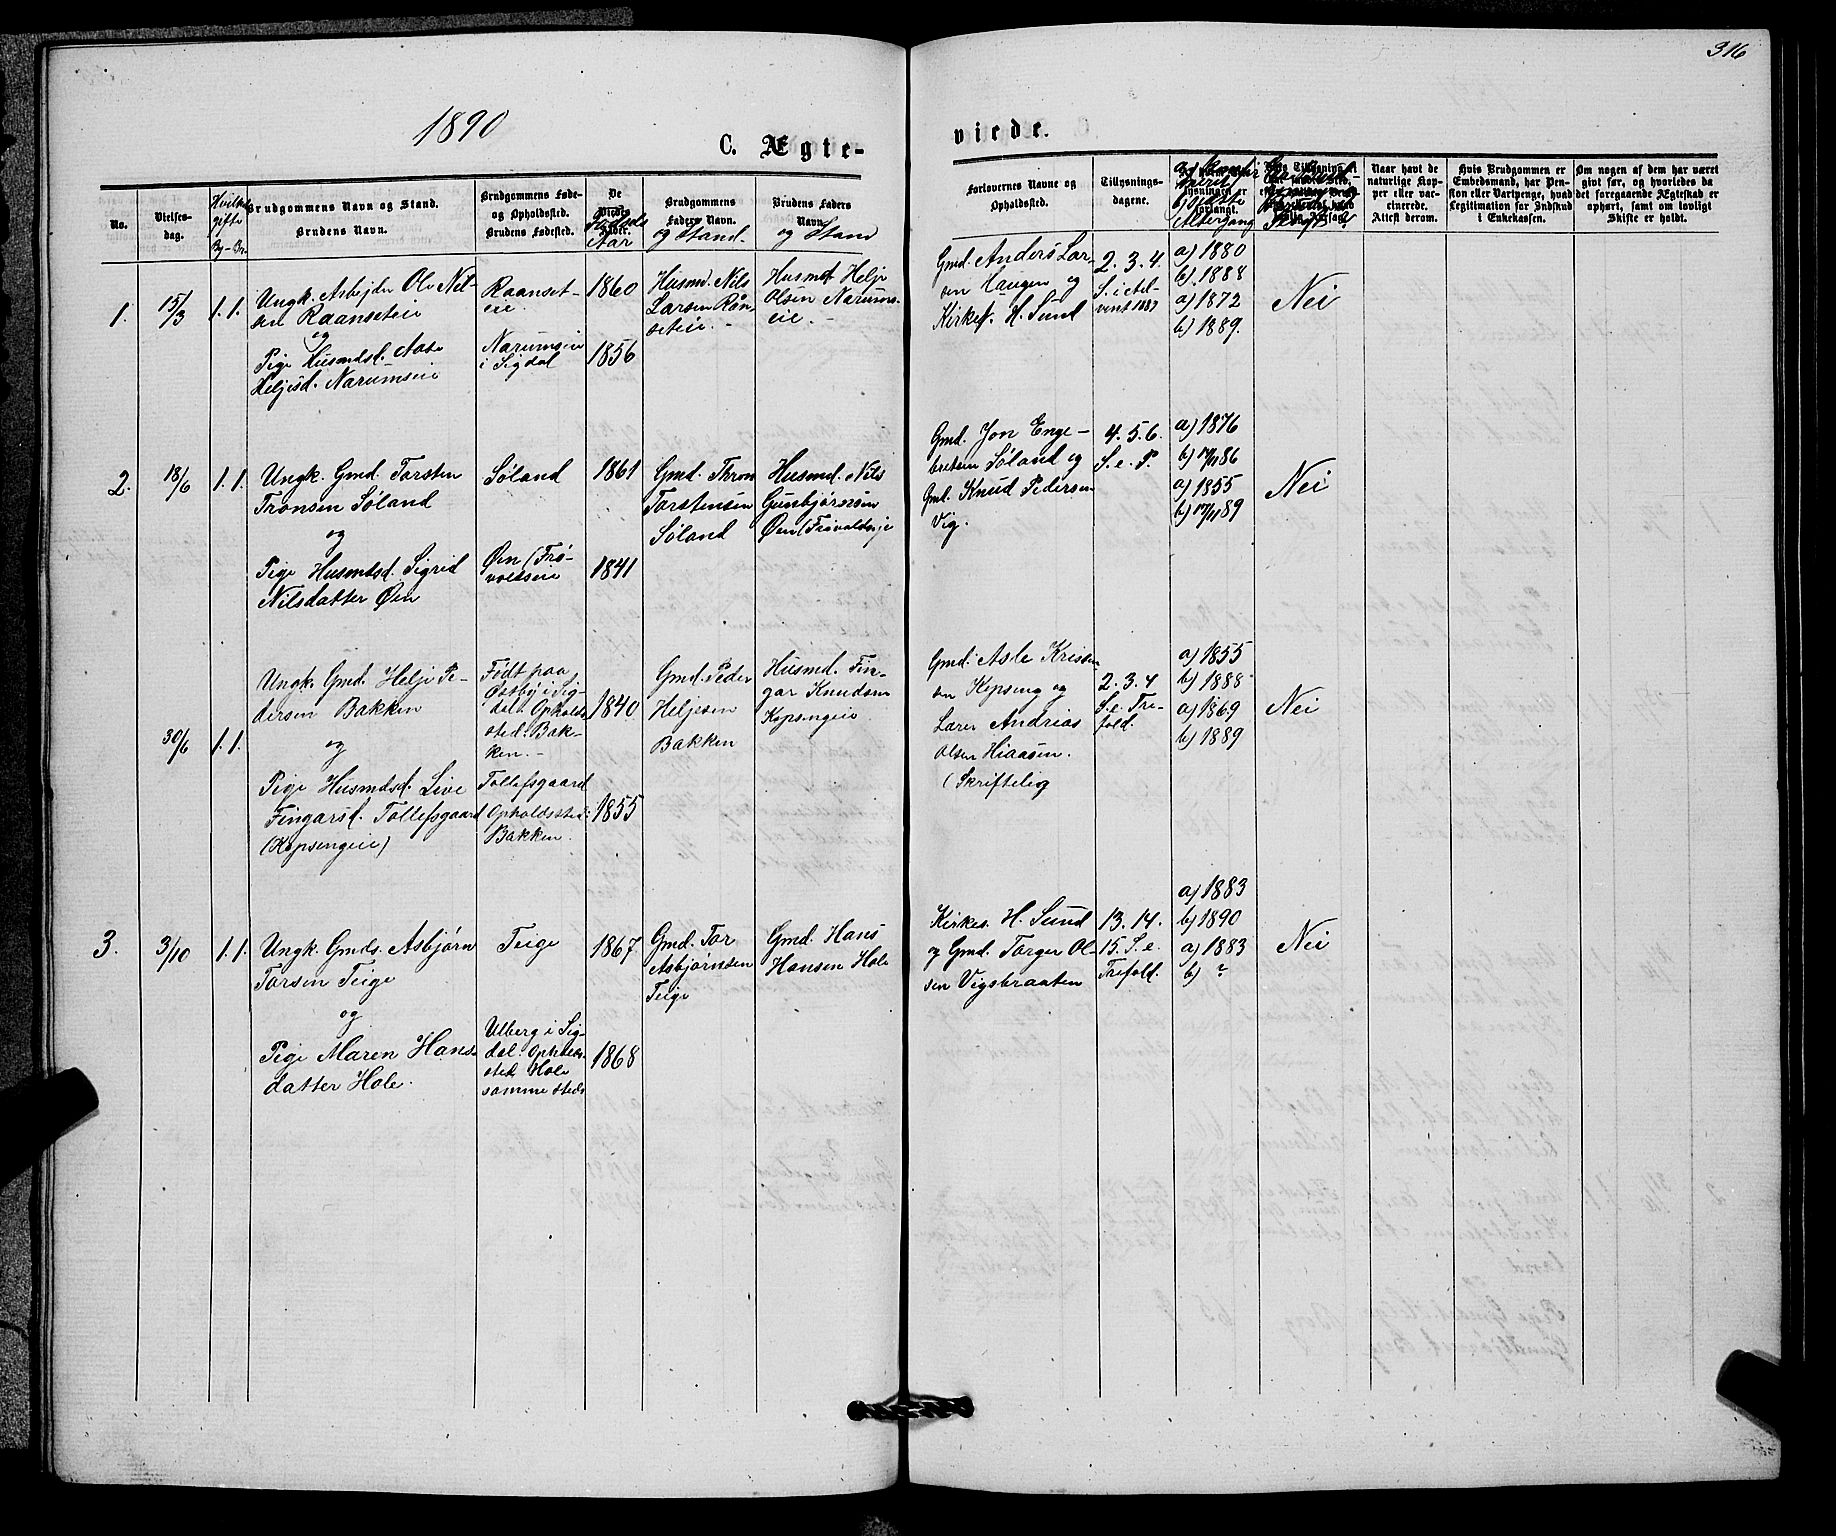 316
1890
C. Ægte-
viede.
No.
Vielses-
dag.
gifte
Bg - Br.
Brudgommens Navn og Stand.
Brudens Navn.
Brudgommens Føde-
og Opholdssted.
Brudens Fødested.
De
Viedes
Alder.
Fødsels
Aar
Brudgommens
Faders Navn.
og Stand.
Brudens Faders
Navn.
og Stand
Forlovernes Navne og
Opholdssted.
Tillysnings-
dagene.
Naar havt de
naturlige Kop-
per eller vac-
cinerede.
Attest derom.
Hvis Brudgommen er
Embedsmand, har Pen-
sion eller Vartpenge, hvad
Legitimation for Indskud
i Enkekassen.
Om nogen af dem har været
gift før, og hvorledes da
det foregaaende Ægteskab er
ophørt, samt om lovligt
Skifte er holdt.
1.
15/3
1. 1.
Ungk. Asbjør Ol. Nil-
sen Raanseteie
og
Pige Husmdsd. Aase
Heljesd. Narumseie
Raanset-
eie.
Narumseie
i Sigdal
1860
1856
Husmd. Nils
Larsen Rån-
seteie. -
Husmd Helje
Olsen Narums-
eie. -
Gmd. Anders Lar-
sen Haugen og
Kirkes. H. Sund
2. 3. 4.
S. i Ad-
vent 1889
a) 1880
b) 1888
a) 1872
b) 1889.
Nei
2.
18/6
1. 1.
Ungk. Gmd. Torsten
Tronsen Søland
og
Pige Husmdsd. Sigrid
Nilsdatter Øen
Søland
Øen (Frø-
voldseie
1861
1841
Gmd. Thron
Torstensen
Søland
Husmd. Nils
Gunbjørnsen
Øen (Frøvoldseie
Gmd. Jon Enge-
bretsen Søland og
Gmd. Knud Pedersen
Vig.
4. 5. 6.
S. e. P.
a) 1876
b) 17/11 86
a) 1855
b) 17/11 89
Nei
30/6
1. 1.
Ungk. Gmd. Helje Pe-
dersen Bakken
og
Pige Husmdsd. Live
Fingarsd. Tollefsgaard
(Kopsengeie)
Født paa
Østby i Sig-
dal. Opholds-
sted. Bak-
ken. -
Tollefsgaard
Opholdssted:
Bakken.
1840
1855
Gmd. Peder
Heljesen
Bakken
Husmd. Fin-
gar Knudsen
Kopsengeie.
Gmd. Asle Kristen-
sen Kopseng og
Lærer Andreas
Olsen Hiaasen.
(Skriftelig
2. 3. 4
S. e. Tre-
fold.
a) 1855
b) 1888
a) 1869
b) 1889
Nei
3.
3/10
1. 1.
Ungk. Gmds. Asbjørn
Torsen Teige
og
Pige Maren Hans-
datter Hole.
Teige
Ulberg i Sig-
dal. Opholds-
sted Hole
sammesteds
1867
1868
Gmd. Tor
Asbjørnsen
Teige
Gmd. Hans
Hansen Hole
Kirkes. H. Sund
og Gmd. Torger Ol-
sen Vigsbraaten
13. 14.
15. S. e.
Trefold.
a) 1883
b) 1890
a) 1883
b) ?
Nei